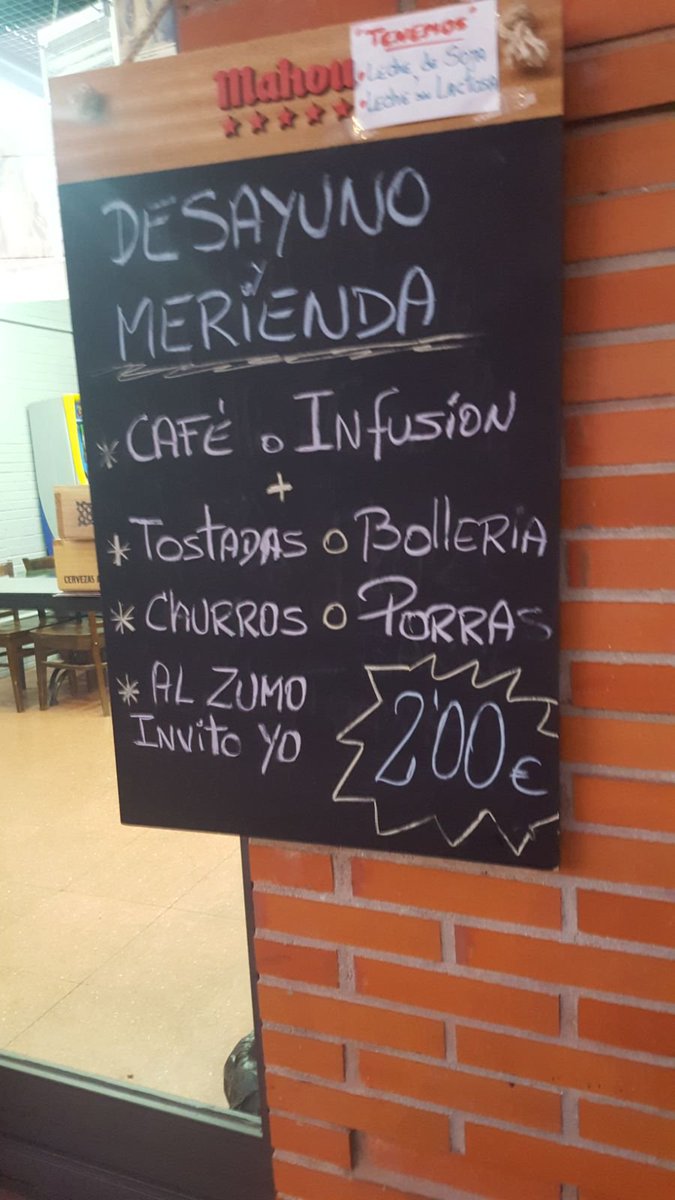 Mahou
"TENEMOS"
• Leche de Soja
• Leche sin Lactosa
DESAYUNO
y
MERIENDA
* CAFÉ o INfusíon
+
* TostADAS o BollERIA
* CHURROS o PORRAS
* AL ZUMO
INVito YO
2'00 €
CERVEZAS